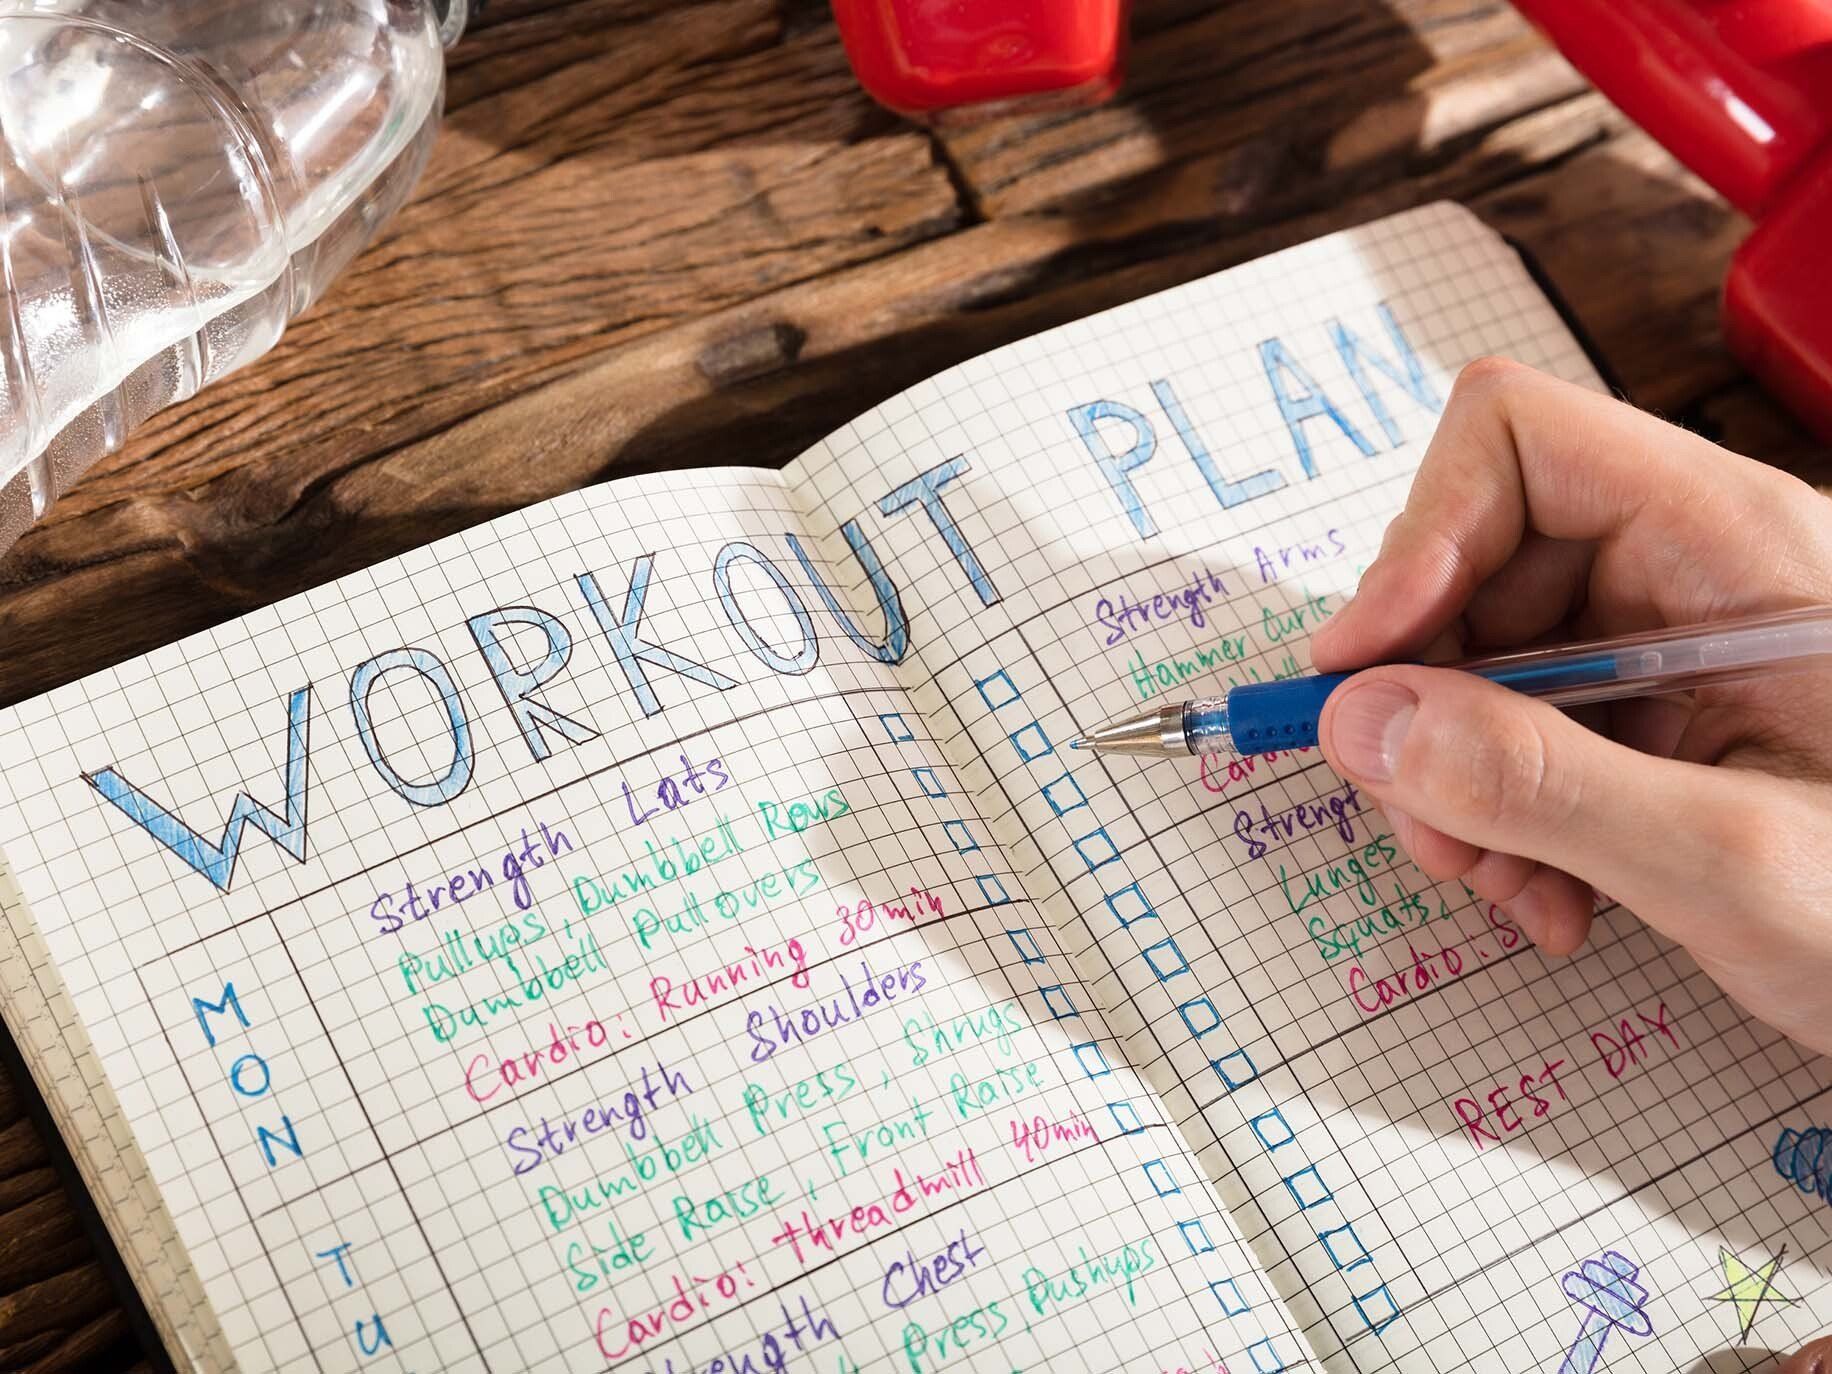 WORKOUT PLAN
MON
Strength Lats
Pullups, Dumbbell Rows
Dumbbell Pullovers
Cardio: Running 30 min
TU
Strength Shoulders
Dumbbell Press, Shrugs
Side Raise, Front Raise
Cardio: threadmill 40 min
Chest
Press, Pushups
Strength Arms
Hammer Curls
Lunges
Squats,
Cardio:
REST DAY